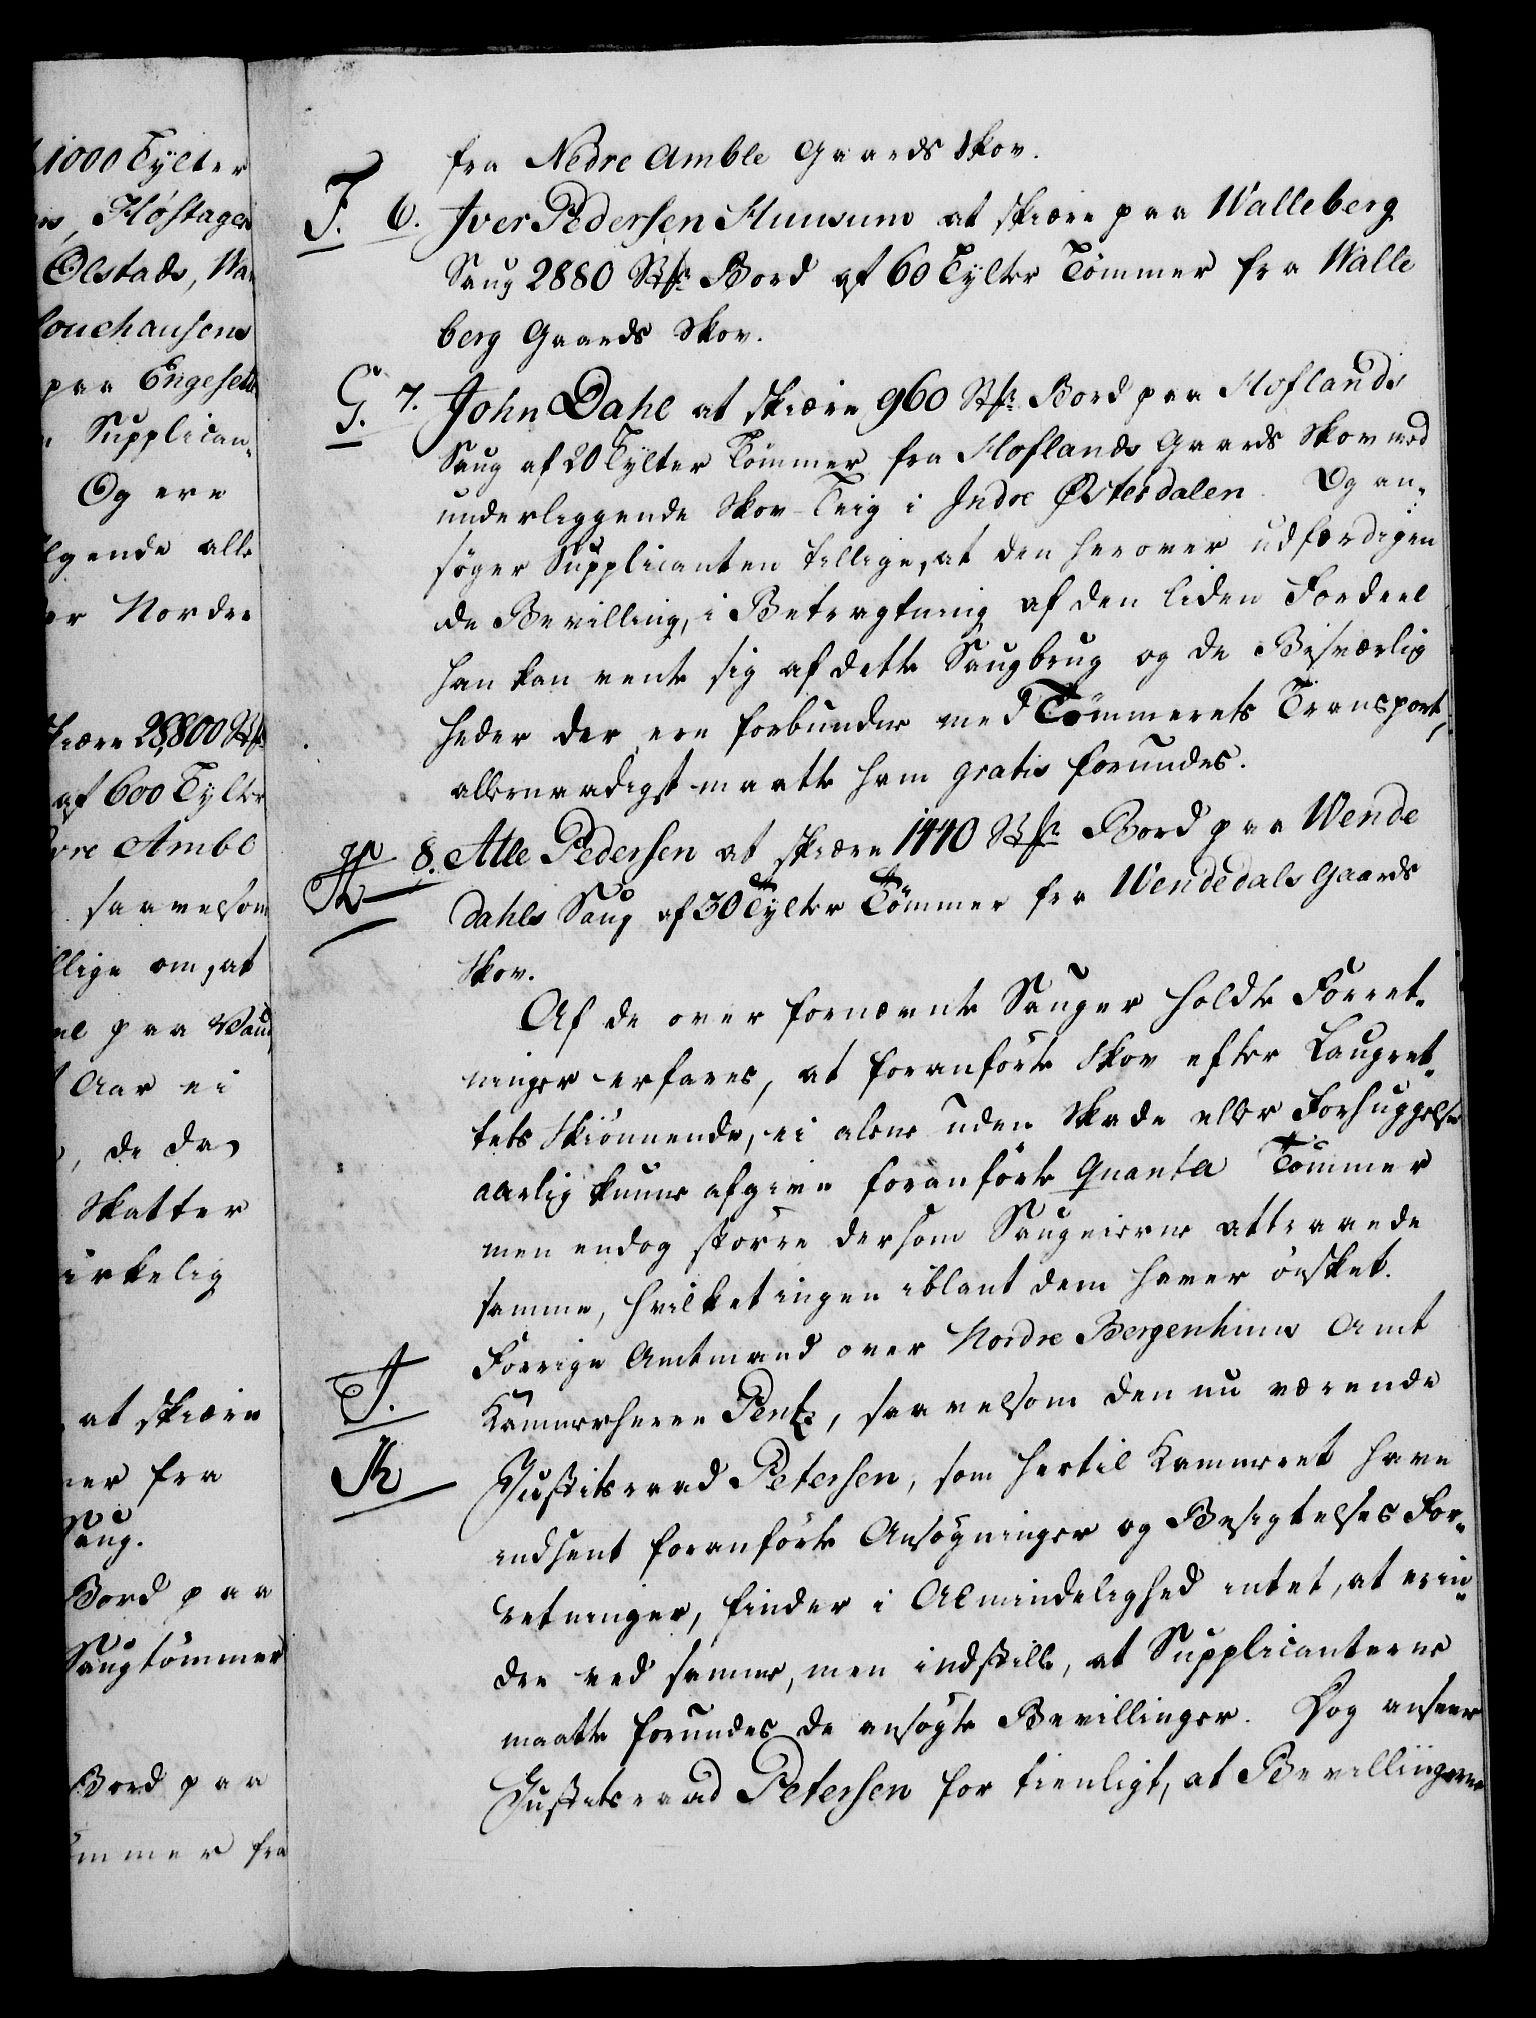 1000 Tylter
Høstager
Olstads, Wa
Couchausens
paa Engesett
Supplican-
Og ere
lgende alle
er Nordre
skiære 28,800 Stk
af 600 Tylter
Amble
saavelsom
llige om, at
paa Saug
Aar ei
, de da
Skatter
irkelig
at skiære
er fra
Saug.
Bord paa
Saugtømmer
Bord paa
ømmer fra
fra Nedre Amble Gaards Skov.
F. 6. Iver Pedersen Hunsum at skiære paa Walleberg
Saug 2880 Stk. Bord af 60 Tylter Tømmer fra Walle
berg Gaards Skov.
G. 7. John Dahl at skiære 960 Stk. Bord paa Hoflands
Saug af 20 Tylter Tømmer fra Hoflands Gaards Skov med
underliggende Skov-Teig i Indre Østerdalen. Og an-
søger Supplicanten tillige, at den herover udfærdigen
de Bevilling, i Betragtning af den liden Fordeel
han kan vente sig af dette Saugbrug og de Besværlig
heder der ere forbunden med Tømmerets Transport,
allernaadigst maatte ham gratis forundes.
H 8. Atle Pedersen at skiære 1440 Stk. Bord paa Wende
dahls Saug af 30 Tylter Tømmer fra Wendedals Gaards
Skov.
Af de over fornævnte Sauger holdte Forret-
ninger erfares, at foranførte Skov efter Laugret-
tets Skiønnende, ei alene uden Skade eller Forhuggelse
aarlig kunne afgive foranførte Quanta Tømmer
men endog større dersom Saugeierne attraaede
samme, hvilket ingen iblant dem haver ønsket.
Forrige Amtmand over Nordre Bergenhuus Amt
I. Kammerherre Pentz, saavelsom den nu værende
K Justitsraad Petersen, som hertil Kammeret have
indsent foranførte Ansøgninger og Besigtelses For-
retninger, finder i Almindelighed intet, at erin-
dre ved samme, men indstille, at Supplicanterne
maatte forundes de ansøgte Bevillinger. Dog anseer
Justitsraad Petersen for tienligt, at Bevillingerne